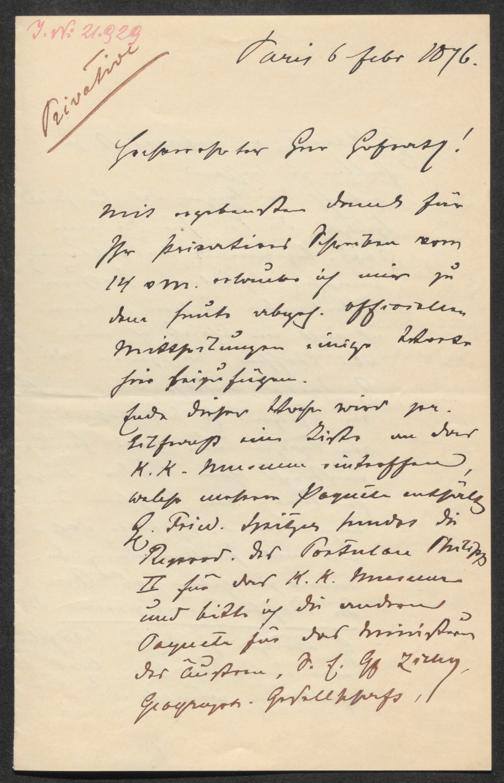 J. N: 21.929
Privative
Paris 6 febr 1876.
Hochverehrter Herr Hofrath!
Mit ergebenstem Danke für
Ihr privatives Schreiben vom
14 v m. erlaube ich mir zu
dem heute abgeh. officiellen
Mittheilungen einige Worte
hier beizufügen.
Ende dieser Woche wird per
Eilfracht eine Kiste an das
K. K. Museum eintreffen,
welche mehrere Paquete enthält
H. Fried. Spitzer sendet die
Reprod. des Portulan Philipp
II für das K. K. Museum
und bitte ich die anderen
Paquete für das Ministerium
des Äussern, S. E. Gf Zichy,
Geograph. Gesellschaft,